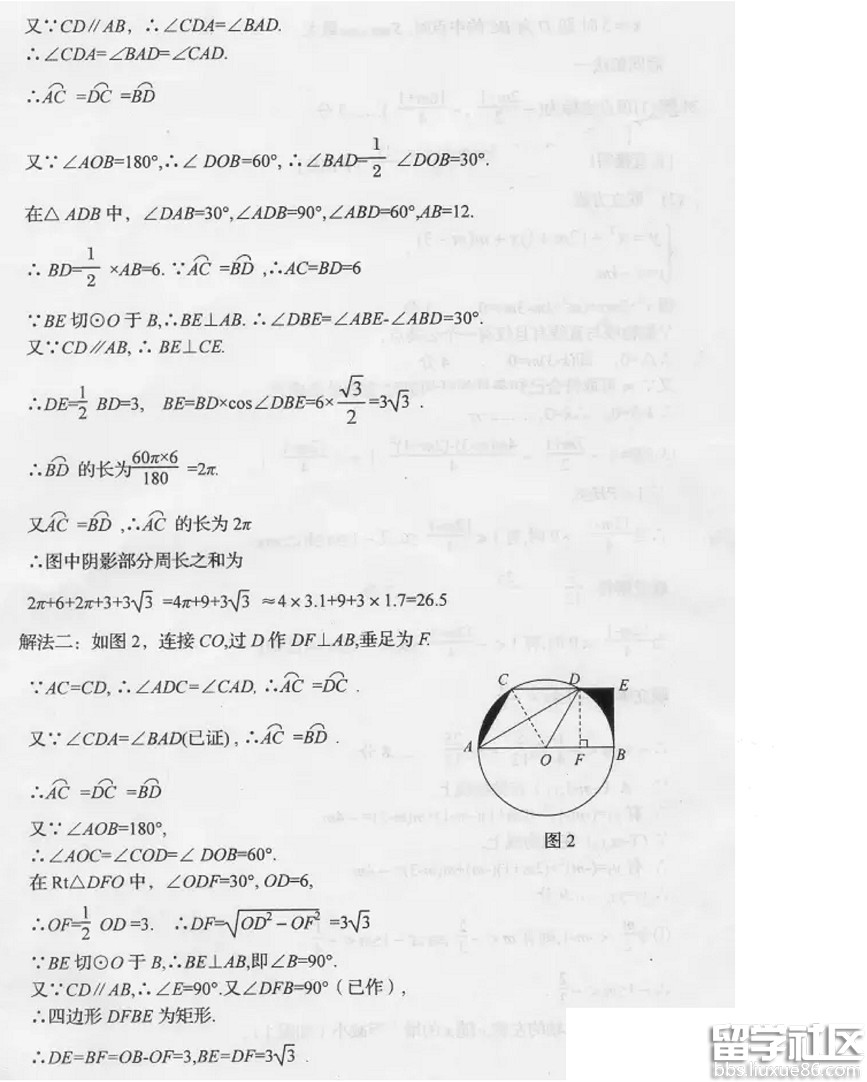 又∵CD∥AB，∴∠CDA=∠BAD.
∴∠CDA=∠BAD=∠CAD.
∴A͡C=D͡C=B͡D
又∵∠AOB=180°,∴∠DOB=60°,∴∠BAD=1/2∠DOB=30°.
在△ADB中，∠DAB=30°,∠ADB=90°,∠ABD=60°,AB=12.
∴BD=1/2×AB=6.∵A͡C=B͡D,∴AC=BD=6
∵BE切⊙O于B,∴BE⊥AB.∴∠DBE=∠ABE-∠ABD=30°.
又∵CD∥AB,∴BE⊥CE.
∴DE=1/2BD=3, BE=BD×cos∠DBE=6×√3/2=3√3.
∴B͡D的长为60π×6/180=2π.
又A͡C=B͡D,∴A͡C的长为2π
∴图中阴影部分周长之和为
2π+6+2π+3+3√3=4π+9+3√3≈4×3.1+9+3×1.7=26.5
解法二：如图2，连接CO,过D作DF⊥AB,垂足为F.
∵AC=CD,∴∠ADC=∠CAD,∴A͡C=D͡C.
又∵∠CDA=∠BAD(已证),∴A͡C=B͡D.
∴A͡C=D͡C=B͡D
又∵∠AOB=180°,
∴∠AOC=∠COD=∠DOB=60°.
在Rt△DFO中，∠ODF=30°,OD=6,
∴OF=1/2OD=3. ∴DF=√(OD²－OF²)=3√3
∵BE切⊙O于B,∴BE⊥AB,即∠B=90°.
又∵CD∥AB,∴∠E=90°.又∠DFB=90°（已作）,
∴四边形DFBE为矩形.
∴DE=BF=OB-OF=3,BE=DF=3√3.
C D E
A O F B
图2
留学社区
bbs.liuxue86.com